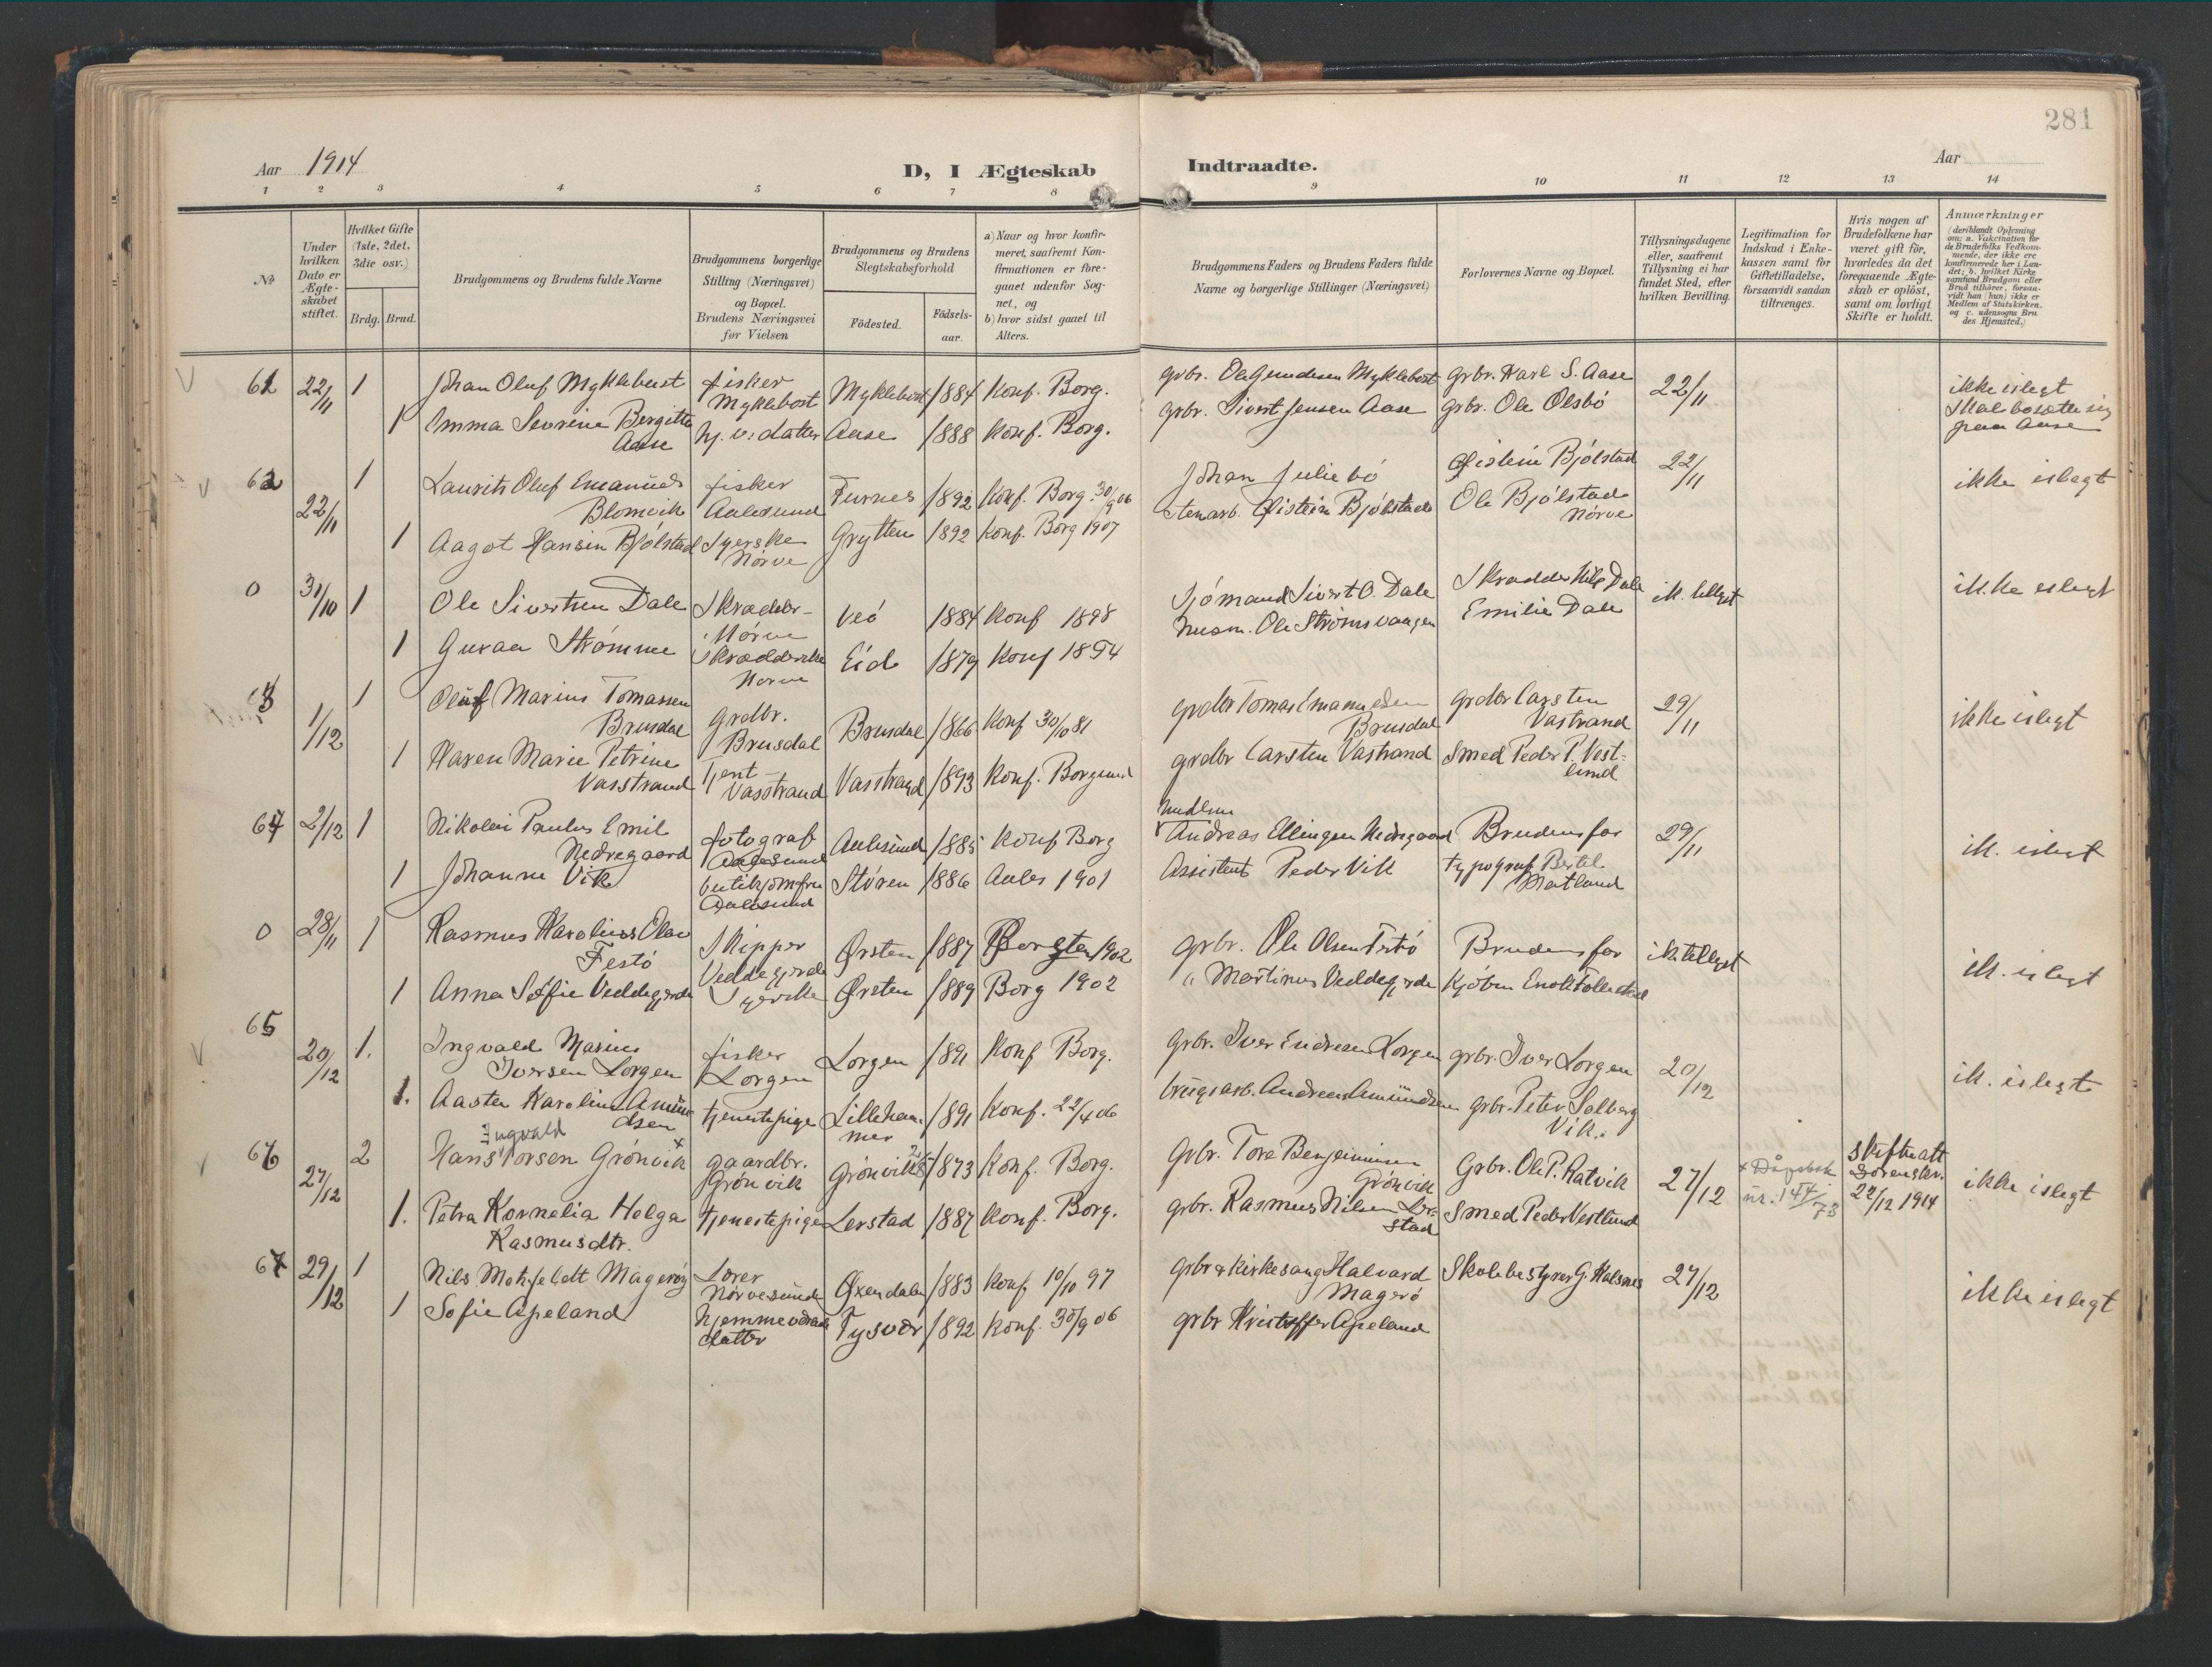 281
Aar 1914
D, I Ægteskab Indtraadte.
Aar
1 2 3 4 5 6 7 8 9 10 11 12 13 14
№
Under hvilken Dato er Ægteskabet stiftet.
Hvilket Gifte (1ste, 2det, 3die osv.)
Brdg. Brud.
Brudgommens og Brudens fulde Navne
Brudgommens borgerlige Stilling (Næringsvei) og Bopæl. Brudens Næringsvei før Vielsen
Brudgommens og Brudens Slegtskabsforhold
Fødested. Fødselsaar.
a) Naar og hvor konfirmeret, saafremt Konfirmationen er foregaaet udenfor Sognet, og
b) hvor sidst gaaet til Alters.
Brudgommens Faders og Brudens Faders fulde Navne og borgerlige Stillinger (Næringsvei)
Forlovernes Navne og Bopæl.
Tillysningsdagene eller, saafremt Tillysning ei har fundet Sted, efter hvilken Bevilling.
Legitimation for Indskud i Enkekassen samt for Giftetilladelse, forsaavidt saadan tiltrænges.
Hvis nogen af Brudefolkene har været gift før, hvorledes da det foregaaende Ægteskab er opløst, samt om lovligt Skifte er holdt.
Anmærkninger (deriblandt Oplysning om: a. Vakcination for de Brudefolks Vedkommende, der ikke ere konfirmerede her i Landet; b. hvilket Kirkesamfund Brudgom eller Brud tilhører, forsaavidt han (hun) ikke er Medlem af Statskirken, og c. udensogns Brudes Hjemsted.)
61 22/11 1 Johan Oluf Myklebust fisker Myklebost Myklebost 1884 Konf. Borg. grbr. Ole Gundesen Myklebost grbr. Karl S. Aase 22/11 ikke islegt Skal bosætte sig paa Aase
1 Emma Severine Bergitte Aase hj. v. datter Aase 1888 Konf. Borg. grbr. Sivert Jensen Aase grbr. Ole Olsbö
62 22/11 1 Laurits Oluf Emanuel Blomvik fisker Aalesund Furnes 1892 Konf. Borg. 30/9 06 Johan Juliebö Øistein Bjölstad 22/11 ikke islegt
1 Aagot Hansin Bjölstad Syerske Nörve Grytten 1892 Konf. Borg 1907 stenarb. Øistein Bjölstad Ole Bjölstad Nörve
0 31/10 1 Ole Sivertsen Dale Skrædder Nörve Veö 1884 Konf 1898 Sjömand Sivert O. Dale Skrædder Nils Dale ik. tillyst ikke islegt
1 Guraa Strömme Skrædderske Nörve Eid 1879 Konf 1894 husm. Ole Strömsvaagen Emilie Dale
63 1/12 1 Oluf Marius Tomassen Brusdal Grdbr. Brusdal Brusdal 1866 Konf 30/10 81 grdbr Tomas Emanuelsen Brusdal grdbr Carsten Vastrand 29/11 ikke islegt
1 Maren Marie Petrine Vasstrand tjent Vasstrand Vasstrand 1893 Konf. Borgund grdbr Carsten Vastrand Smed Peder P. Vestlund
64 2/12 1 Nikolai Paulus Emil Nedregaard fotograf Aalesund Aalesund 1885 Konf Borg Andreas Ellingsen Nedregaard Brudens far 29/11 ik. islegt
1 Johanne Vik butikjomfru Aalesund Stören 1886 Aales 1901 Assistent Peder Vik typograf Bertel Matland
0 28/11 1 Rasmus Karolius Olav Festö Skipper Veddegjerde Ørsten 1887 1902 grbr. Ole Olsen Festö Brudens far ik tillyst ik. islegt
1 Anna Sofie Veddegjerde Syerske Ørsten 1889 Borg 1902 " Martinus Veddegjerde Kjöbm Enok Tollestad
65 20/12 1. Ingvald Marius Iversen Lorgen fisker Lorgen Lorgen 1891 Konf Borg. grbr. Iver Endresen Lorgen grbr. Iver Lorgen 20/12 ik. islegt
1. Aasta Karoline Amundsen tjenestepige Lillehammer 1891 Konf. 22/4 06 brugsarb. Andreas Amundsen grbr. Peter Solberg Vik.
66 27/12 2 Hans Ingvald Torsen Grönvik x gaardbr. Grönvik Grönvik 1873 Konf. Borg. Grbr. Tore Benjaminsen Grönvik Grbr. Ole P. Ratvik 27/12 x Dåpsbok nr. 144/73 Skifteatt Sorenskr. 22/12 1914 ikke islegt
1. Petra Kornelia Helga Rasmusdtr. tjenestepige Lerstad 1887 Konf. Borg. grbr. Rasmus Nilsen Lerstad Smed Peder Vestlund
67 29/12 1 Nils Mohrfeldt Magerøy Lærer Nörvesund Øxendalen 1883 Konf 10/10 97 Grbr & kirkesang Halvard Magerö Skolebestyrer G. Halsnes 27/12 ikke islegt
1 Sofie Apeland hjemmeværende datter Tysvær 1892 Konf. 30/9 06 grbr Kristoffer Apeland